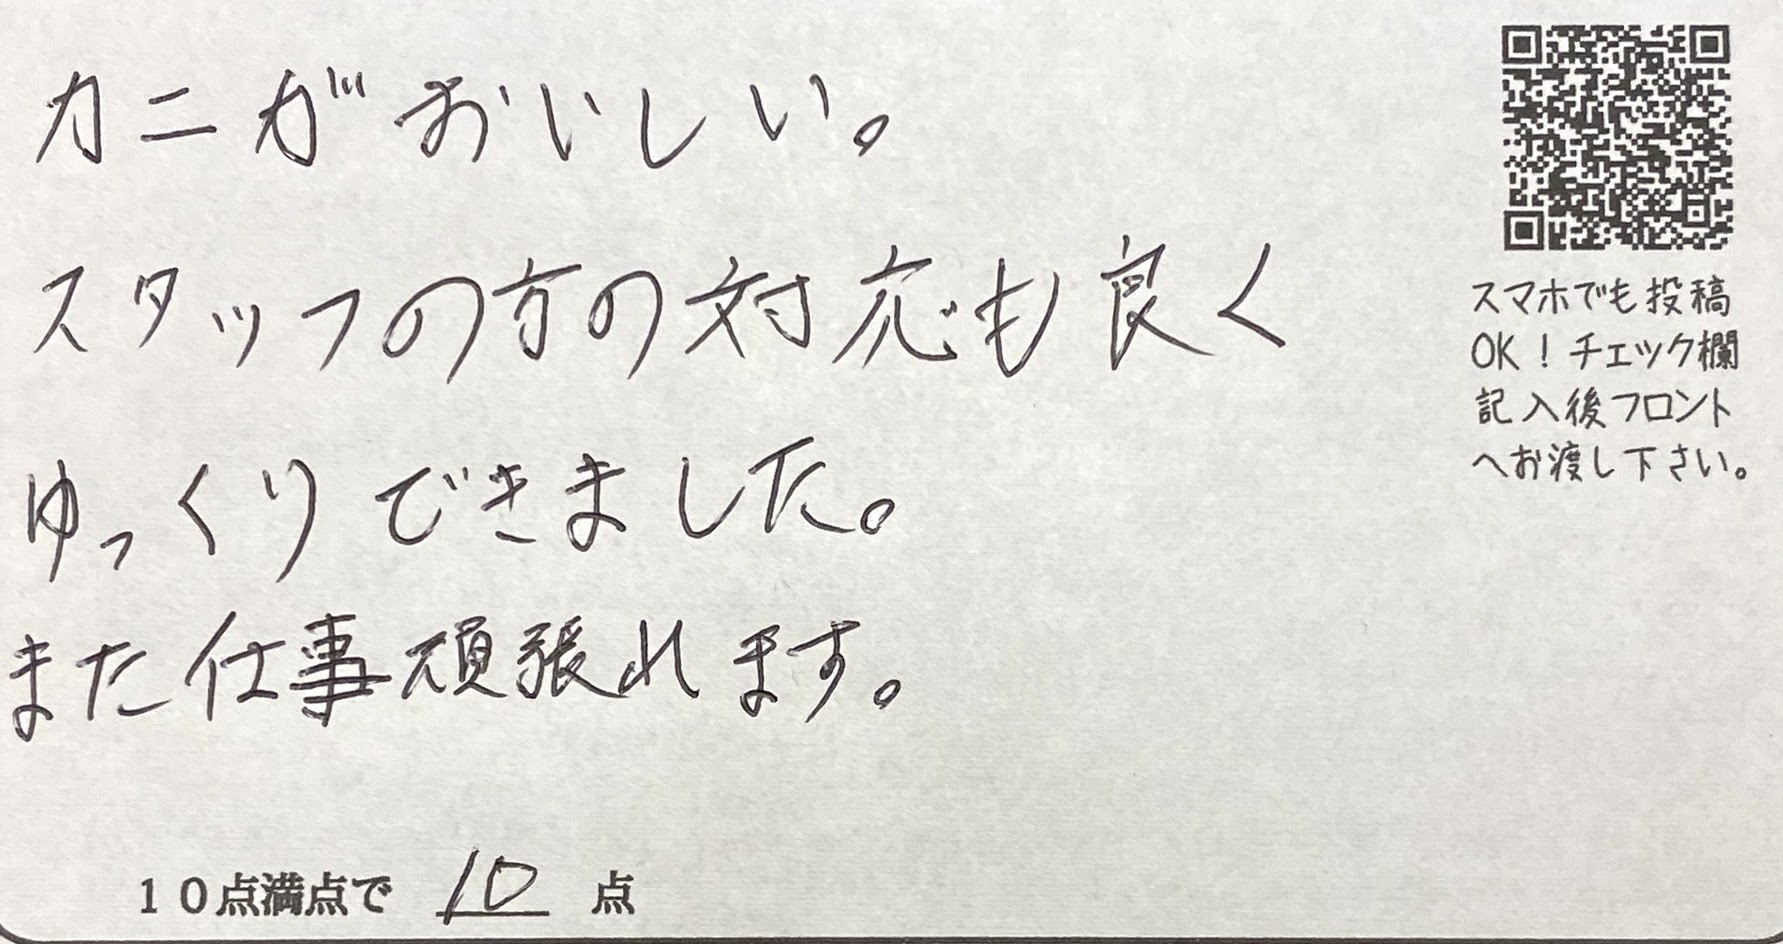 カニがおいしい。
スタッフの方の対応も良く
ゆっくりできました。
また仕事頑張れます。
10点満点で 10 点
スマホでも投稿
OK！チェック欄
記入後フロント
へお渡し下さい。